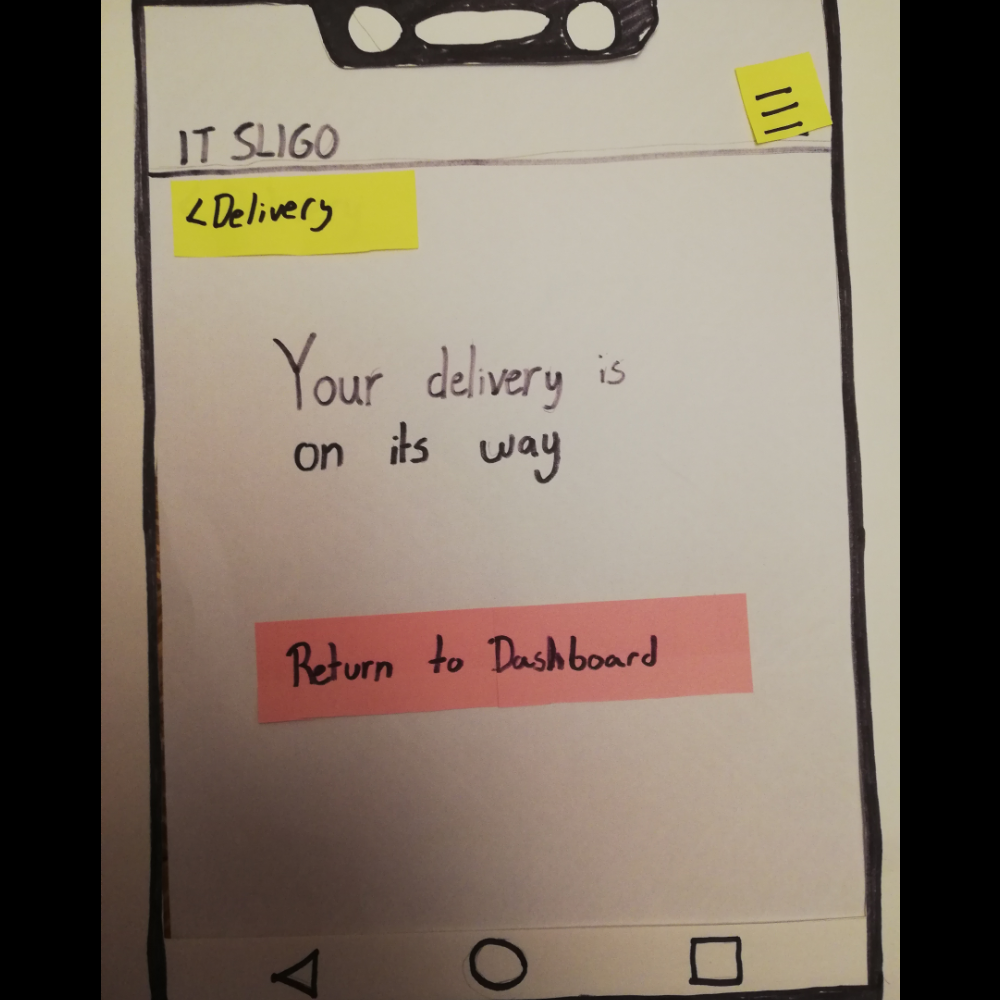 IT SLIGO
< Delivery
Your delivery is
on its way
Return to Dashboard